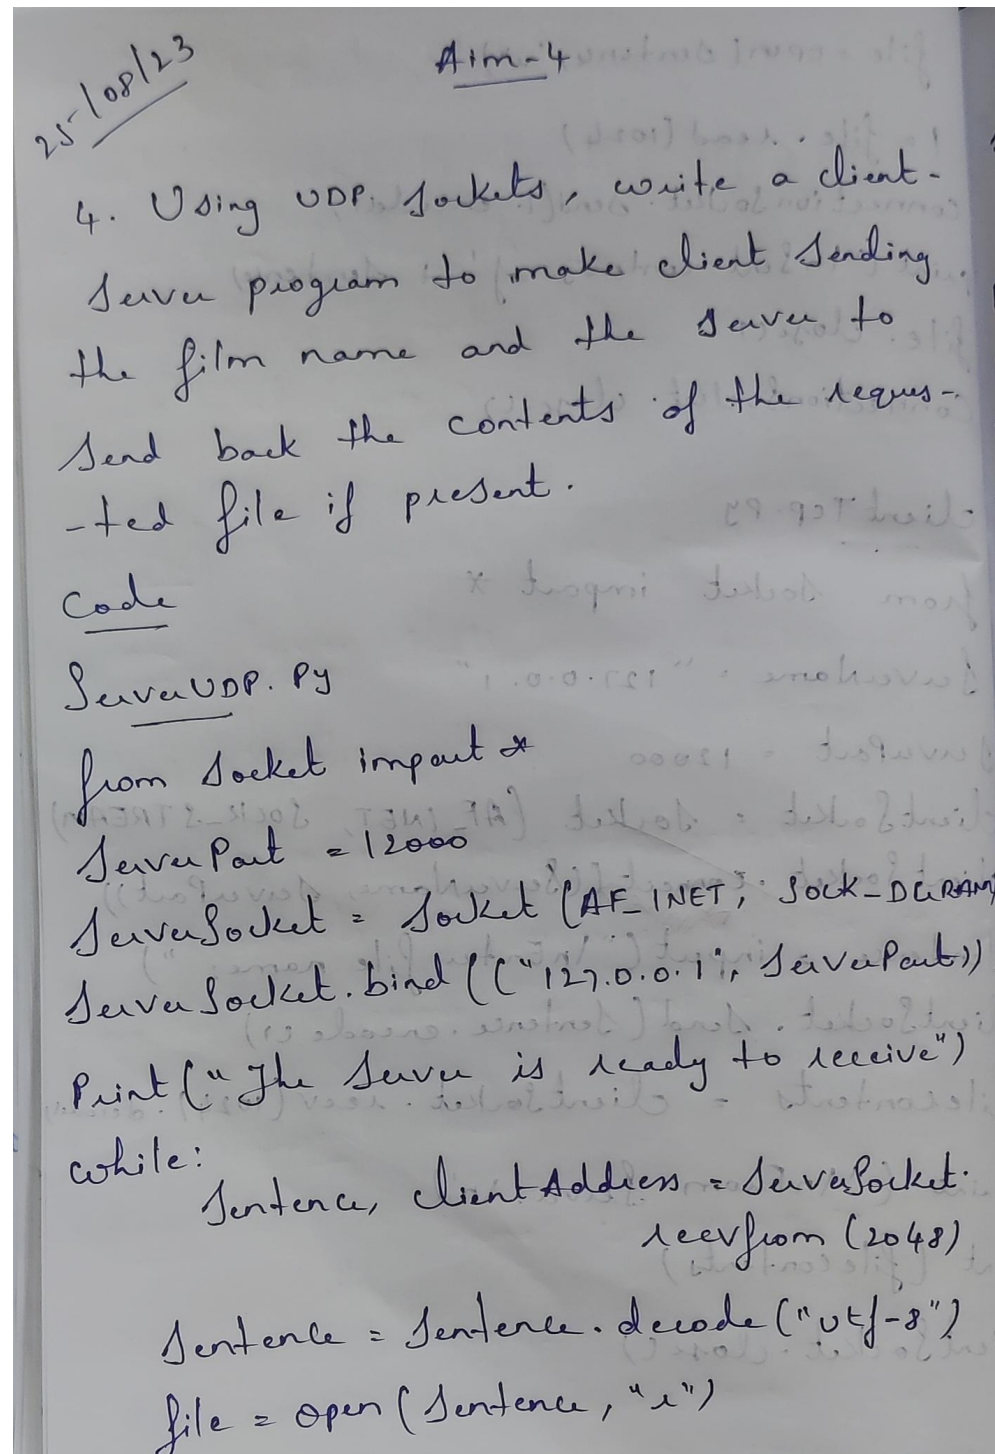 25/08/23
Aim-4
4. Using UDP sockets, write a client-
server program to make client sending
the film name and the server to
send back the contents of the reques-
-ted file if present.
Code
ServerUDP.py
from socket import *
ServerPort = 12000
ServerSocket = socket (AF_INET, SOCK_DGRAM)
ServerSocket.bind (("127.0.0.1", ServerPort))
Print ("The server is ready to receive")
while:
Sentence, clientAddress = ServerSocket.
recvfrom (2048)
Sentence = Sentence.decode ("utf-8")
file = open (Sentence, "r")